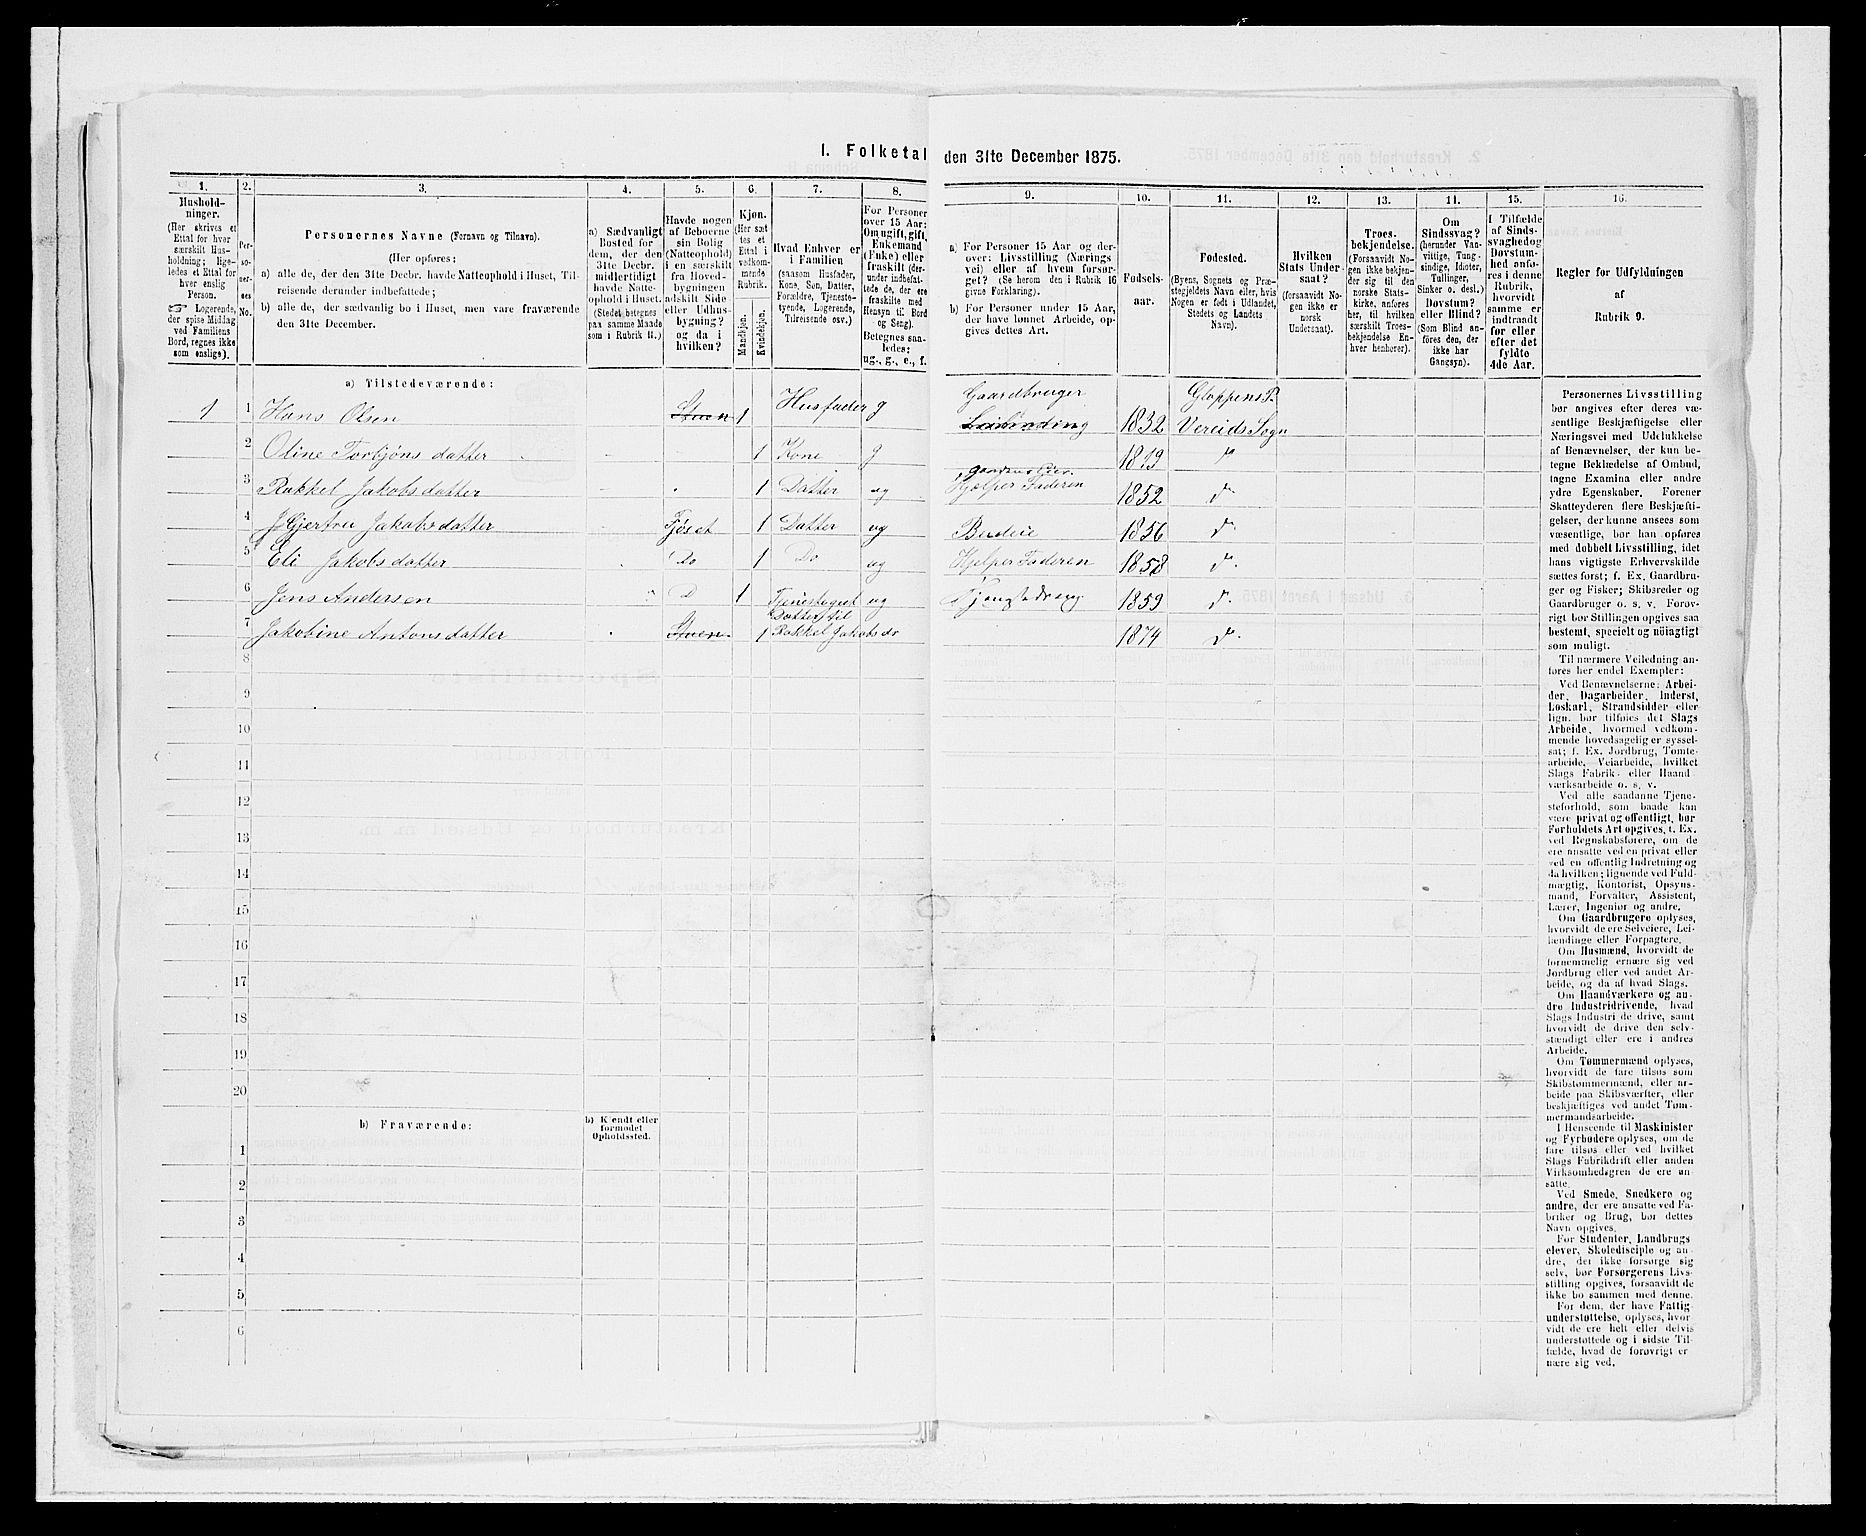 I. Folketal den 31te December 1875.
1. 2. 3. 4. 5. 6. 7. 8. 9. 10. 11. 12. 13. 14. 15. 16.
Husholdninger.
(Her skrives et Ettal for hver særskilt Husholdning; ligeledes et Ettal for hver enslig Person.
Logerende, der spise Middag ved Familiens Bord, regnes ikke som enslige).
Personernes No.
Personernes Navne (Fornavn og Tilnavn).
(Her opføres:
a) alle de, der den 31te Decbr. havde Natteophold i Huset, Tilreisende derunder indbefattede;
b) alle de, der sædvanlig bo i Huset, men vare fraværende den 31te December.
a) Sædvanligt Bosted for dem, der den 31te Decbr. midlertidigt havde Natteophold i Huset. (Stedet betegnes paa samme Maade som i Rubrik 11.)
Havde nogen af Beboerne sin Bolig (Natteophold) i en særskilt fra Hovedbygningen adskilt Side eller Udhusbygning? og da i hvilken?
Kjøn. (Her sættes et Ettal i vedkommende Rubrik.
Mandkjøn. Kvindekjøn.
Hvad Enhver er i Familien
(saasom Husfader, Kone, Søn, Datter, Forældre, Tjenestetyende, Logerende, Tilreisende osv.)
For Personer over 15 Aar: Om ugift, gift, Enkemand (Enke) eller fraskilt (derunder indbefattede de, der ere fraskilte med Hensyn til Bord og Seng). Betegnes saaledes: ug., g., e., f.
a) For Personer 15 Aar og derover: Livsstilling (Næringsvei) eller af hvem forsørget? (Se herom den i Rubrik 16 givne Forklaring).
b) For Personer under 15 Aar, der have lønnet Arbeide, opgives dettes Art.
Fødselsaar.
Fødested.
(Byens, Sognets og Præstegjeldets Navn eller, hvis Nogen er født i Udlandet, Stedets og Landets Navn).
Hvilken Stats Undersaat?
(forsaavidt Nogen ikke er norsk Undersaat).
Troesbekjendelse.
(Forsaavidt Nogen ikke bekjender sig til den norske Statskirke, anføres her, til hvilken særskilt Troesbekjendelse Enhver henhører).
Om Sindssvag?
(herunder Vanvittige, Tungsindige, Idioter, Tullinger, Sinker o. desl.)
Døvstum? eller Blind?
(Som Blind anføres den, der ikke har Gangsyn).
I Tilfælde af Sindssvaghed og Døvstumhed anføres i denne Rubrik, hvorvidt samme er indtraadt før eller efter det fyldte 4de Aar.
Regler for Udfyldningen af Rubrik 9.
a) Tilstedeværende:
1 1 Hans Olsen Stuen 1 Husfader g Gaardbruger Leilending 1832 Gloppens P. Vereids Sogn
2 Oline Torbjøns datter 1 Kone g 1819 d
3 Rakkel Jakobsdatter 1 Datter ug Hjelper Faderen 1852 d.
4 Gjertru Jakobsdatter Fjøset 1 Datter ug Budeie 1856 d.
5 Eli Jakobsdatter Do 1 Do ug Hjelper Faderen 1858 d.
6 Jens Andersen D 1 ug 1859 d.
7 Jakobine Antonsdatter Stuen 1 Datter til Rakkel Jakobsdr 1874 d.
8
9
10
11
12
13
14
15
16
17
18
19
20
b) Fraværende:
b) Kjendt eller formodet Opholdssted.
1
2
3
4
5
6
Personernes Livsstilling
bør angives efter deres væ-
sentlige Beskjæftigelse eller
Næringsvei med Udelukkelse
af Benævnelser, der kun be-
tegne Beklædelse af Ombud,
tagne Examina eller andre
ydre Egenskaber. Forener
Skatteyderen flere Beskjæfti-
gelser, der kunne ansees som
væsentlige, bør han opføres
med dobbelt Livsstilling, idet
hans vigtigste Erhvervskilde
sættes først; f. Ex. Gaardbru-
ger og Fisker; Skibsreder og
Gaardbruger o. s. v. Forøv-
rigt bør Stillingen opgives saa
bestemt, specielt og nøiagtigt
som muligt.
Til nærmere Veiledning an-
føres her endel Exempler:
Ved Benævnelserne: Arbei-
der, Dagarbeider, Inderst,
Løskarl, Strandsidder eller
lign. bør tilføies det Slags
Arbeide, hvormed vedkom-
mende hovedsagelig er syssel-
sat; f. Ex. Jordbrug, Tomte-
arbeide, Veiarbeide, hvilket
Slags Fabrik- eller Haand-
værksarbeide o. s. v.
Ved alle saadanne Tjene-
steforhold, som baade kan
være privat og offentligt, bør
Forholdets Art opgives, t. Ex.
ved Regnskabsførere, om de
ere ansatte ved en privat eller
ved en offentlig Indretning og
da hvilken; lignende ved Fuld-
mægtig, Kontorist, Opsyns-
mand, Forvalter, Assistent,
Lærer, Ingeniør og andre.
Om Gaardbrugere oplyses,
hvorvidt de ere Selveiere, Lei-
lændinge eller Forpagtere.
Om Husmænd, hvorvidt de
fornemmelig ernære sig ved
Jordbrug eller ved andet Ar-
beide, og da af hvad Slags.
Om Haandværkere og an-
dre Industridrivende, hvad
Slags Industri de drive, samt
hvorvidt de drive den selv-
stændigt eller ere i andres
Arbeide.
Om Tømmermænd oplyses,
hvorvidt de fare tilsøs som
Skibstømmermænd, eller ar-
beide paa Skibsværfter, eller
beskjæftiges ved andet Tøm-
mermandsarbeide.
I Henseende til Maskinister
og Fyrbødere oplyses, om de
fare tilsøs eller ved hvilket
Slags Fabrikdrift eller anden
Virksomhedsgren de ere an-
satte.
Ved Smede, Snedkere og
andre, der ere ansatte ved Fa-
briker og Brug, bør dettes
Navn opgives.
For Studenter, Landbrugs-
elever, Skoledisciple og an-
dre, der ikke forsørge sig
selv, bør Forsørgerens Livs-
stilling opgives, forsaavidt de
ikke bo sammen med denne.
For dem, der have Fattig-
understøttelse, oplyses, hvor-
vidt de ere helt eller delvis
understøttede og i sidste Til-
fælde, hvad de forøvrigt er-
nære sig ved.